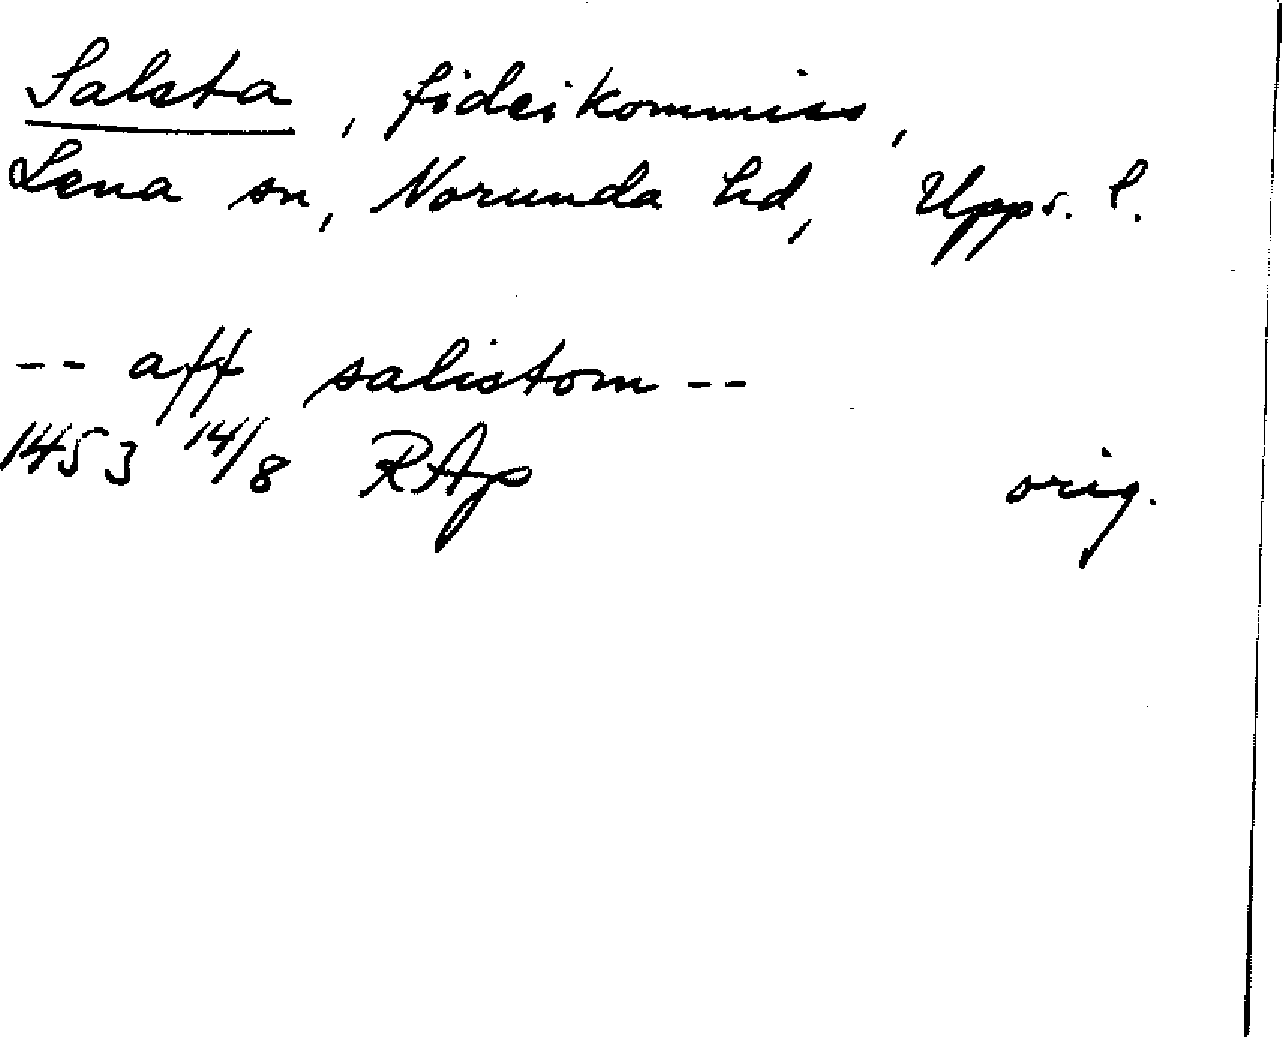 Salsta, fideikommiss,
Lena sn, Norunda hd, Upps. l.
-- aff salistom --
1453 14/8 RAp orig.